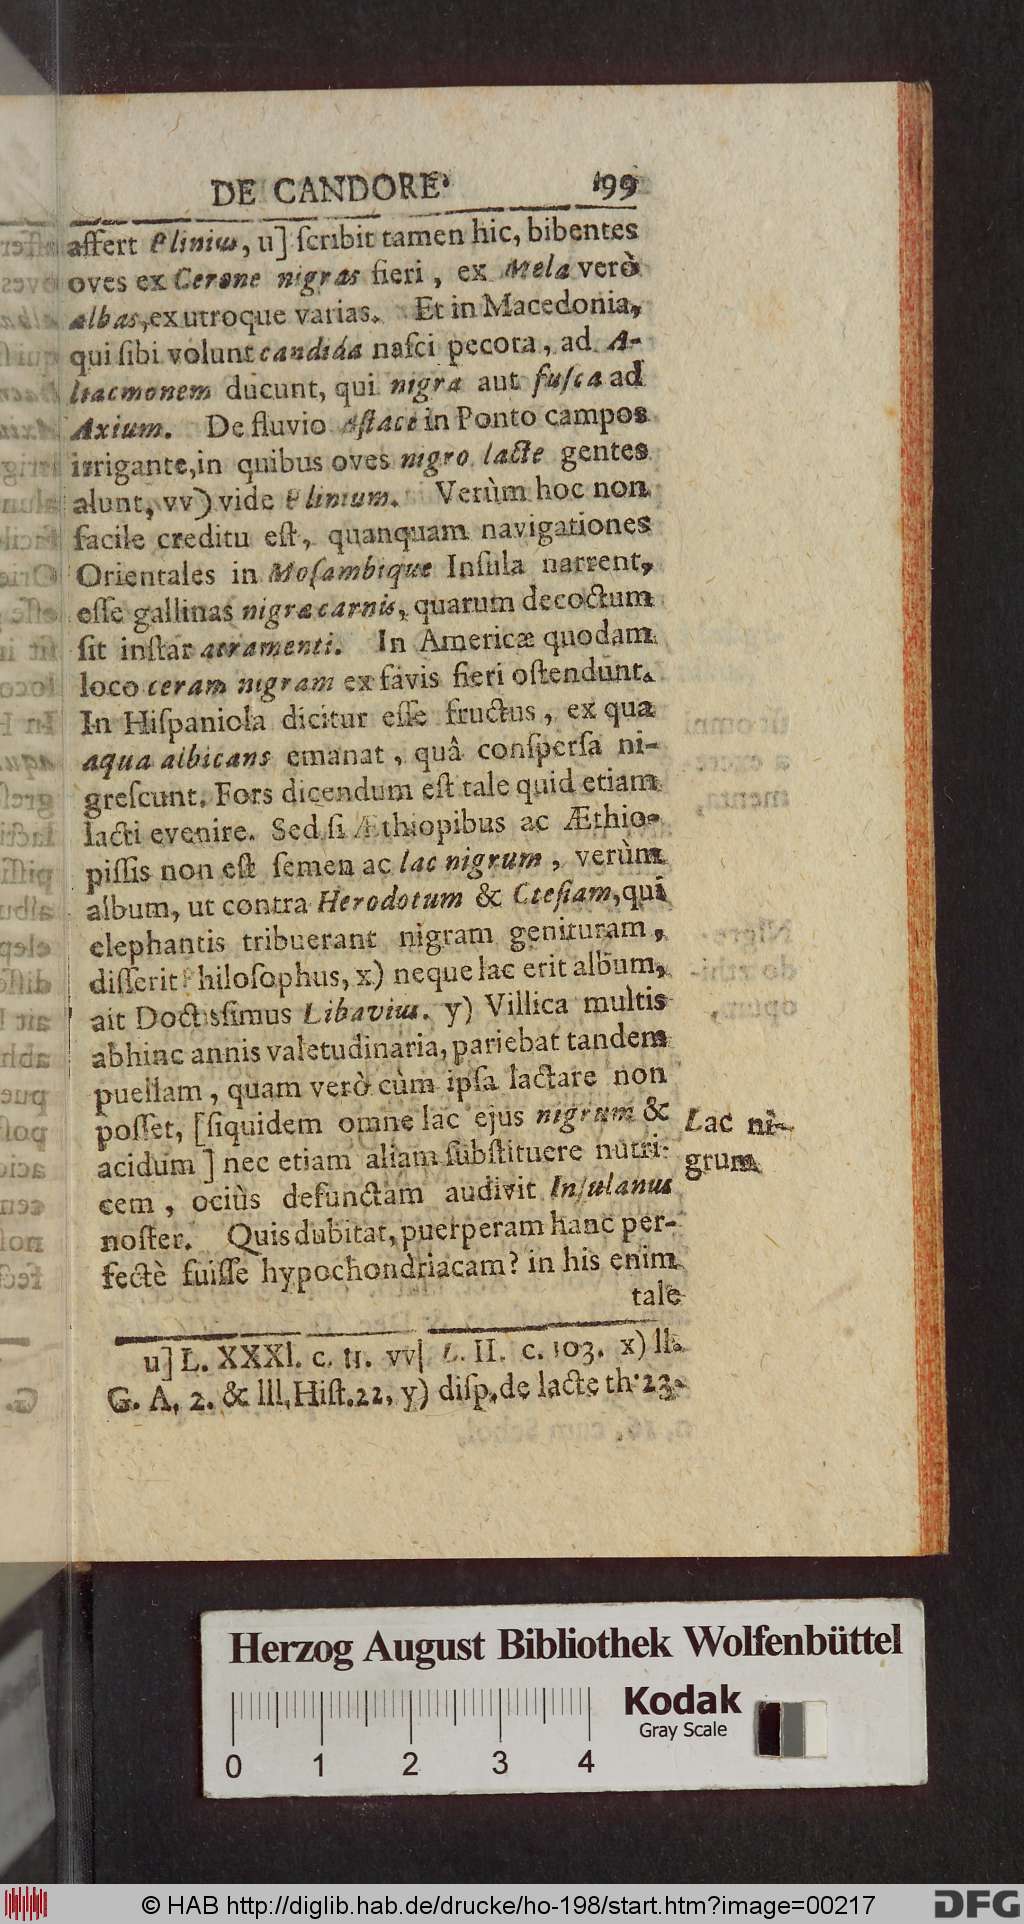 DE CANDORE. 199
affert Plinius, u] ſcribit tamen hic, bibentes
oves ex Cerone nigras fieri, ex Mela verò
albas, ex utroque varias. Et in Macedonia,
qui ſibi volunt candida naſci pecora, ad A-
liacmonem ducunt, qui nigra aut fuſca ad
Axium. De fluvio Aſtace in Ponto campos
irrigante, in quibus oves nigro lacte gentes
alunt, vv) vide Plinium. Verùm hoc non
facile creditu eſt, quanquam navigationes
Orientales in Moſambique Inſula narrent,
eſſe gallinas nigræ carnis, quarum decoctum
ſit inſtar atramenti. In Americæ quodam
loco ceram nigram ex favis fieri oſtendunt.
In Hiſpaniola dicitur eſſe fructus, ex qua
aqua albicans emanat, quâ conſperſa ni-
greſcunt. Fors dicendum eſt tale quid etiam
lacti evenire. Sed ſi Æthiopibus ac Æthio-
piſſis non eſt ſemen ac lac nigrum, verùm
album, ut contra Herodotum & Cteſiam, qui
elephantis tribuerant nigram genituram,
diſſerit Philoſophus, x) neque lac erit album,
ait Doctiſſimus Libavius. y) Villica multis
abhinc annis valetudinaria, pariebat tandem
puellam, quam verò cùm ipſa lactare non
poſſet, [ſiquidem omne lac ejus nigrum &
acidum] nec etiam aliam ſubſtituere nutri-
cem, ociùs defunctam audivit Inſulanus
noſter. Quis dubitat, puerperam hanc per-
fectè fuiſſe hypochondriacam? in his enim
tale
Lac ni-
grum
u] L. XXXI. c. 11. vv] L. II. c. 103. x) II.
G. A. 2. & III, Hiſt. 22, y) diſp. de lacte th. 23.
Herzog August Bibliothek Wolfenbüttel
Kodak
Gray Scale
0 1 2 3 4
© HAB http://diglib.hab.de/drucke/ho-198/start.htm?image=00217
DFG